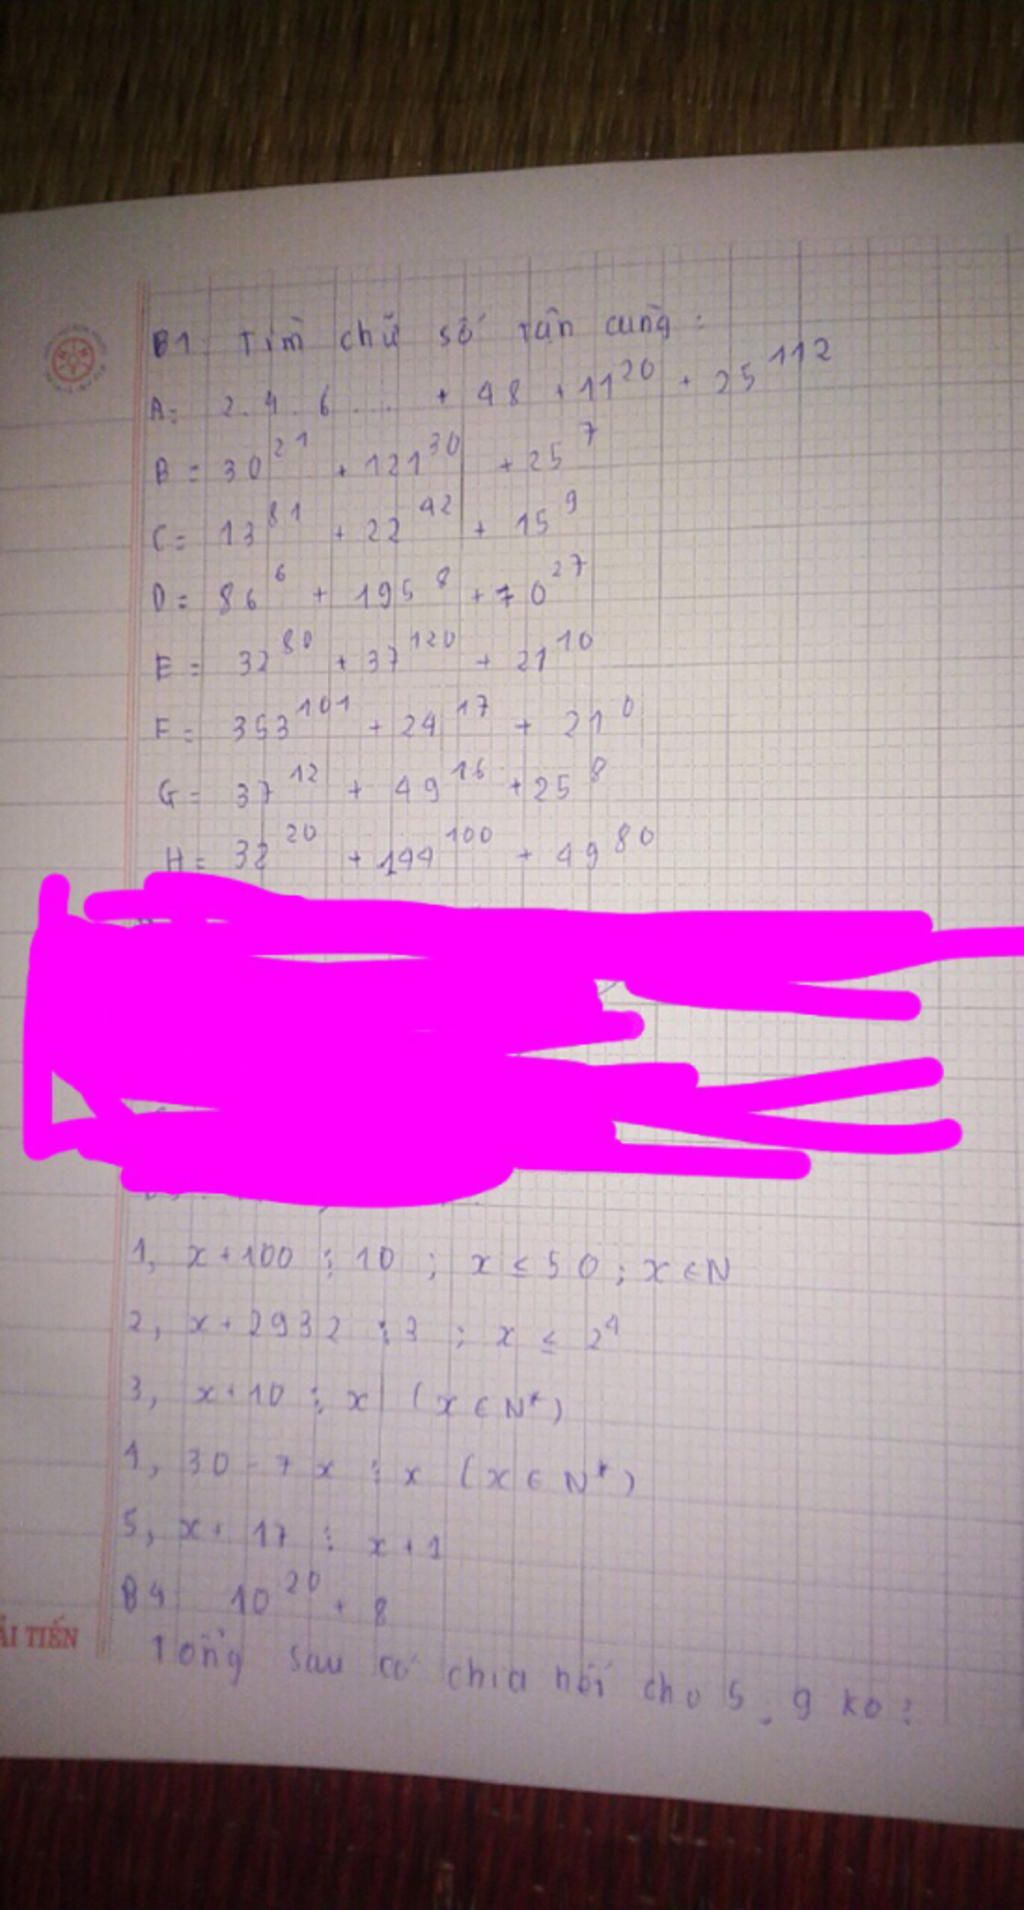 B1: Tìm chữ số tận cùng:
A= 2.4.6.... + 48 + 11^20 + 25^112
B = 30^21 + 121^30 + 25^7
C= 13^81 + 22^42 + 15^9
D= 86^6 + 195^8 + 70^27
E = 32^80 + 37^120 + 21^10
F= 353^101 + 24^17 + 21^0
G= 37^12 + 49^16 + 25^8
H= 32^20 + 144^100 + 49^80
1, x+100 ⋮ 10 ; x ≤ 50 ; x ∈ N
2, x+2932 ⋮ 3 ; x ≤ 2^4
3, x+10 ⋮ x (x ∈ N*)
4, 30-7x ⋮ x (x ∈ N*)
5, x+17 ⋮ x+1
B4 10^20 + 8
ẢI TIẾN
Tổng sau có chia hết cho 5, 9 ko: